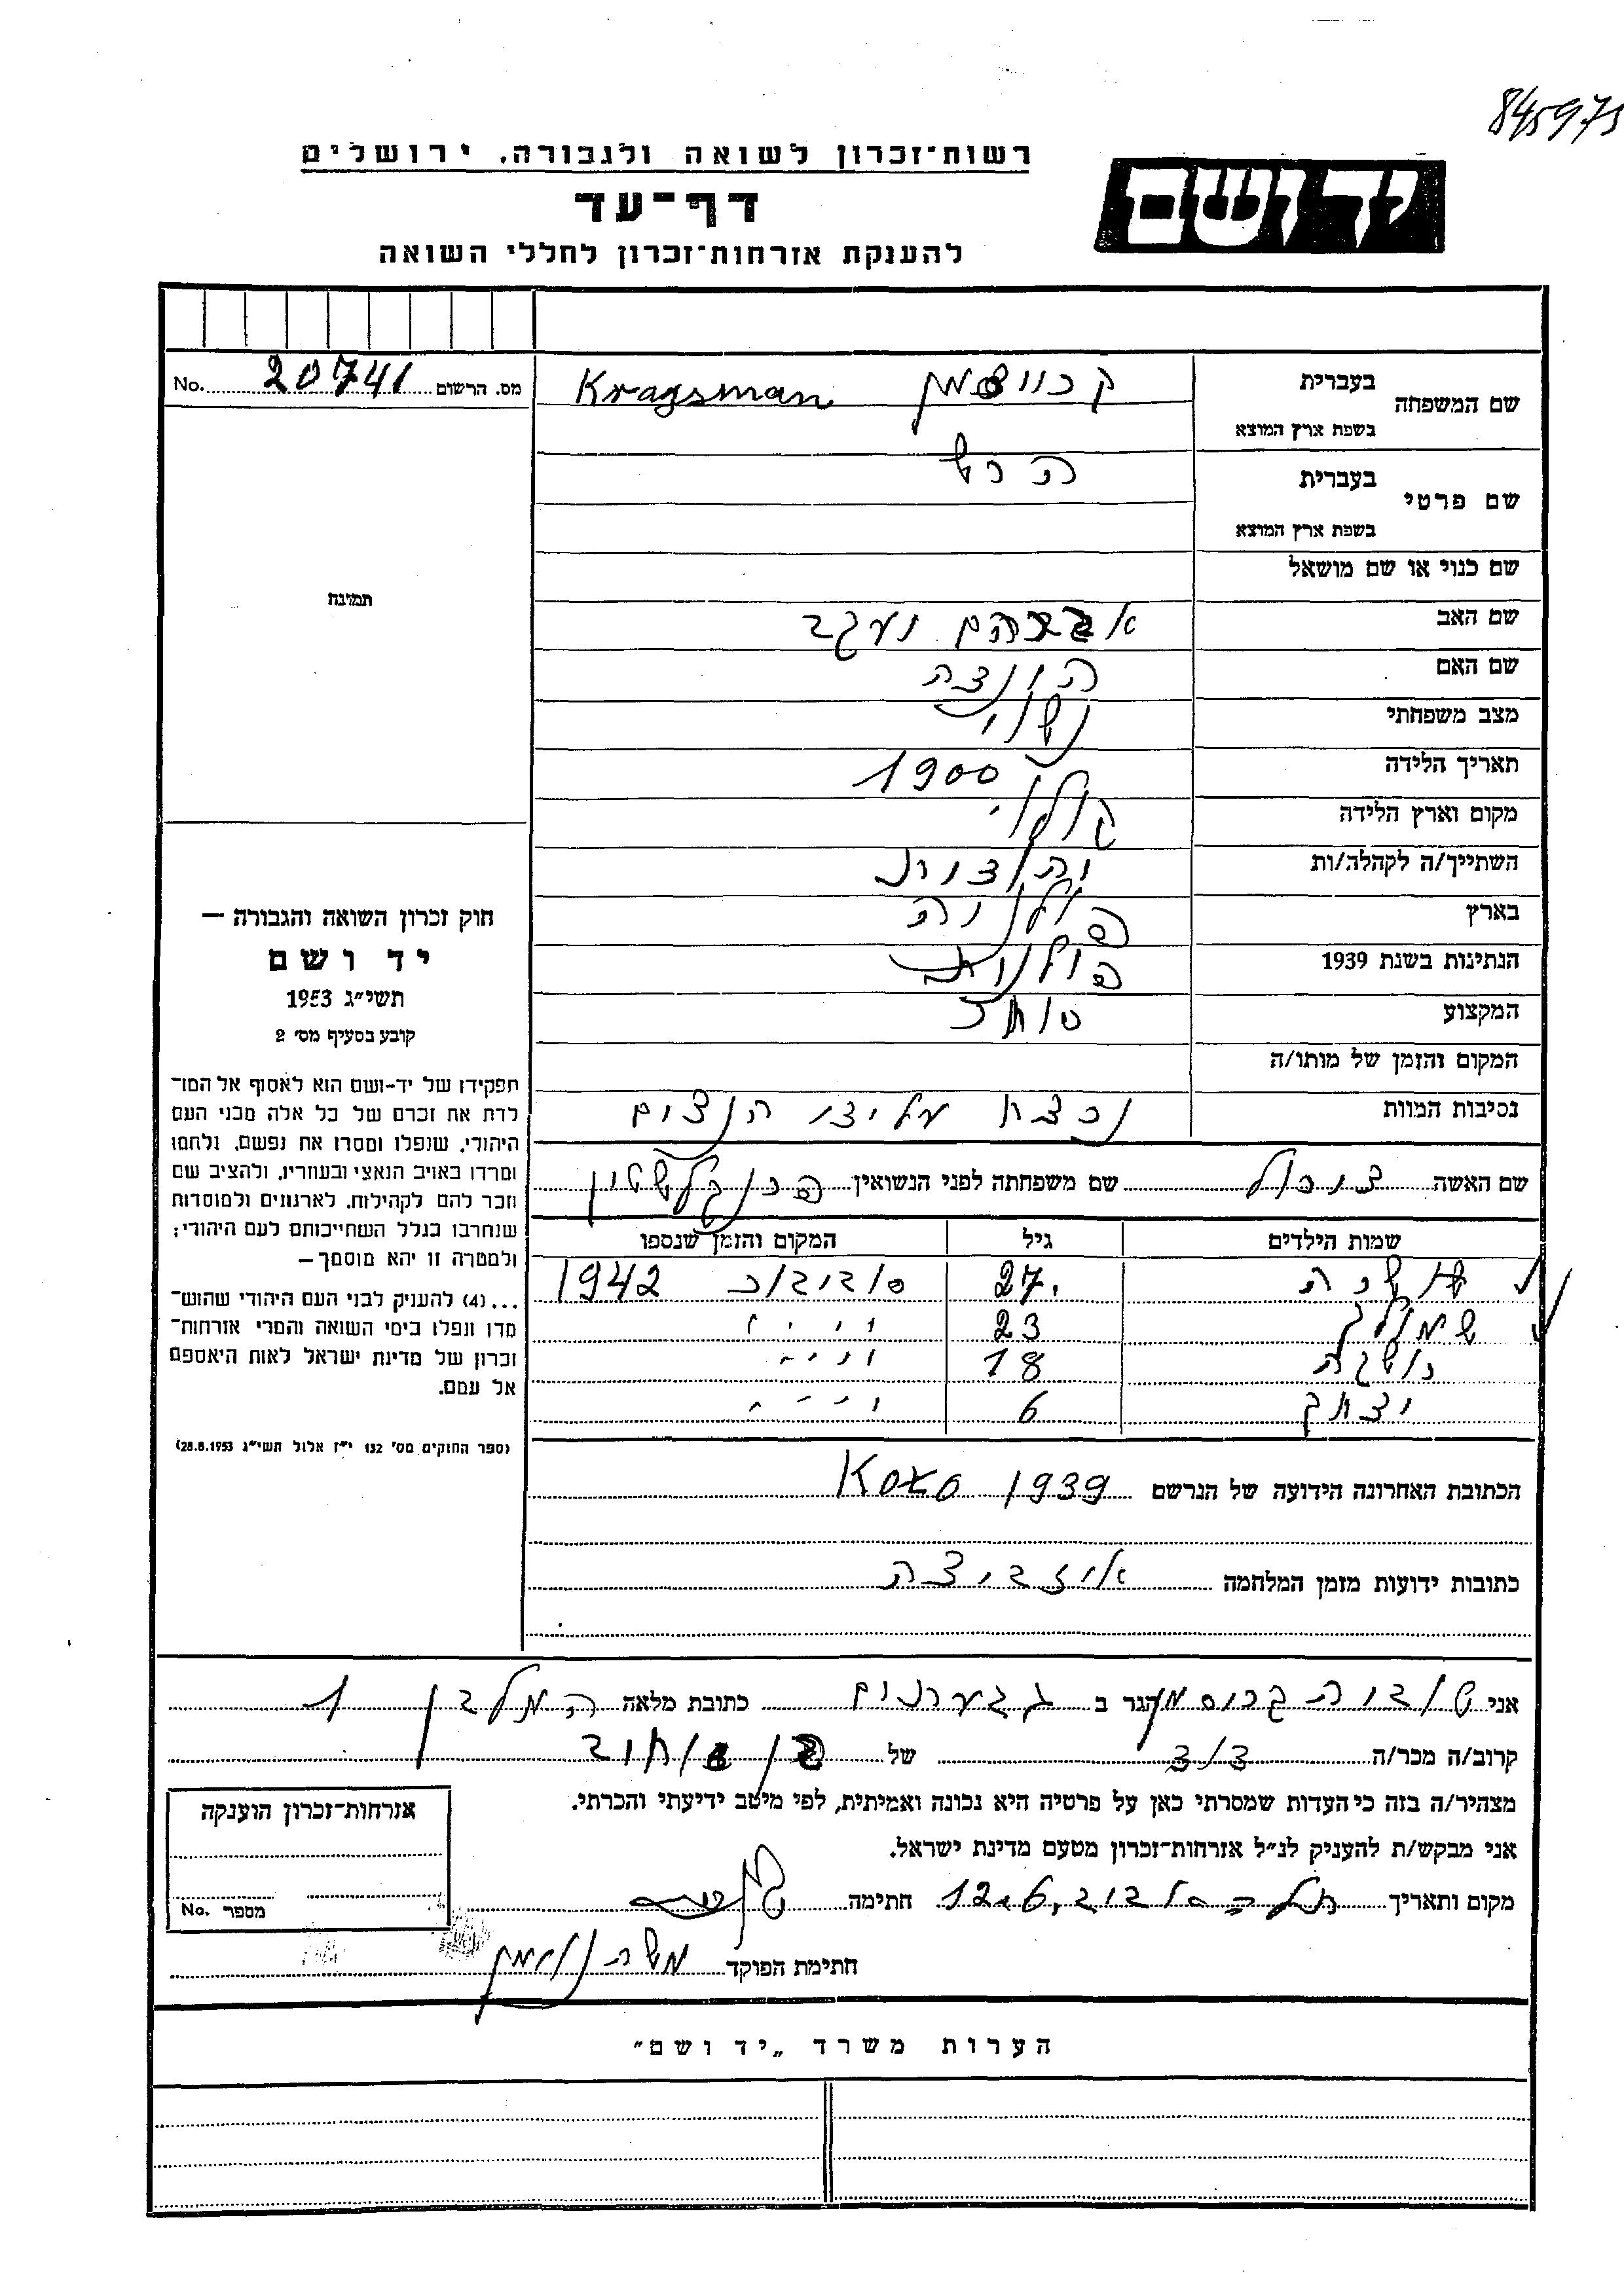 845975
רשות־זכרון לשואה ולגבורה, ירושלים
יד ושם
דף־עד
להענקת אזרחות־זכרון לחללי השואה
שם המשפחה בעברית
Kragsman
בשפת ארץ המוצא
מס. הרשום 20741 No.
שם פרטי בעברית הרש
בשפת ארץ המוצא
שם כנוי או שם מושאל
תמונה
שם האב אברהם יעקב
שם האם
מצב משפחתי נשוי
תאריך הלידה 1900
מקום וארץ הלידה
השתייך/ה לקהלה/ות
בארץ פולניה
הנתינות בשנת 1939 פולנית
המקצוע סוחר
המקום והזמן של מותו/ה
נסיבות המוות נרצח הנצים
חוק זכרון השואה והגבורה —
יד ושם
תשי״ג 1953
קובע בסעיף מס׳ 2
תפקידו של יד-ושם הוא לאסוף אל המו־
לדת את זכרם של כל אלה מבני העם
היהודי, שנפלו ומסרו את נפשם, נלחמו
ומרדו באויב הנאצי ובעוזריו, ולהציב שם
וזכר להם לקהילות, לארגונים ולמוסדות
שנחרבו בגלל השתייכותם לעם היהודי;
ולמטרה זו יהא מוסמך—
...(4) להעניק לבני העם היהודי שהוש־
מדו ונפלו בימי השואה והמרי אזרחות־
זכרון של מדינת ישראל לאות היאספם
אל עמם.
(ספר החוקים מס׳ 132 י״ז אלול תשי״ג 28.8.1953)
שם האשה שם משפחתה לפני הנשואין
שמות הילדים גיל המקום והזמן שנספו
27 סוביבור 1942
23 ״
18 ״
יצחק 6 ״
הכתובת האחרונה הידועה של הנרשם 1939
כתובות ידועות מזמן המלחמה איזביצה
אני טובה הגר ב גבעתיים כתובת מלאה המלבן 1
קרוב/ה מכר/ה של
מצהיר/ה בזה כי העדות שמסרתי כאן על פרטיה היא נכונה ואמיתית, לפי מיטב ידיעתי והכרתי.
אני מבקש/ת להעניק לנ״ל אזרחות־זכרון מטעם מדינת ישראל.
מקום ותאריך חתימה
חתימת הפוקד משה
אזרחות־זכרון הוענקה
מספר No.
הערות משרד „יד ושם״